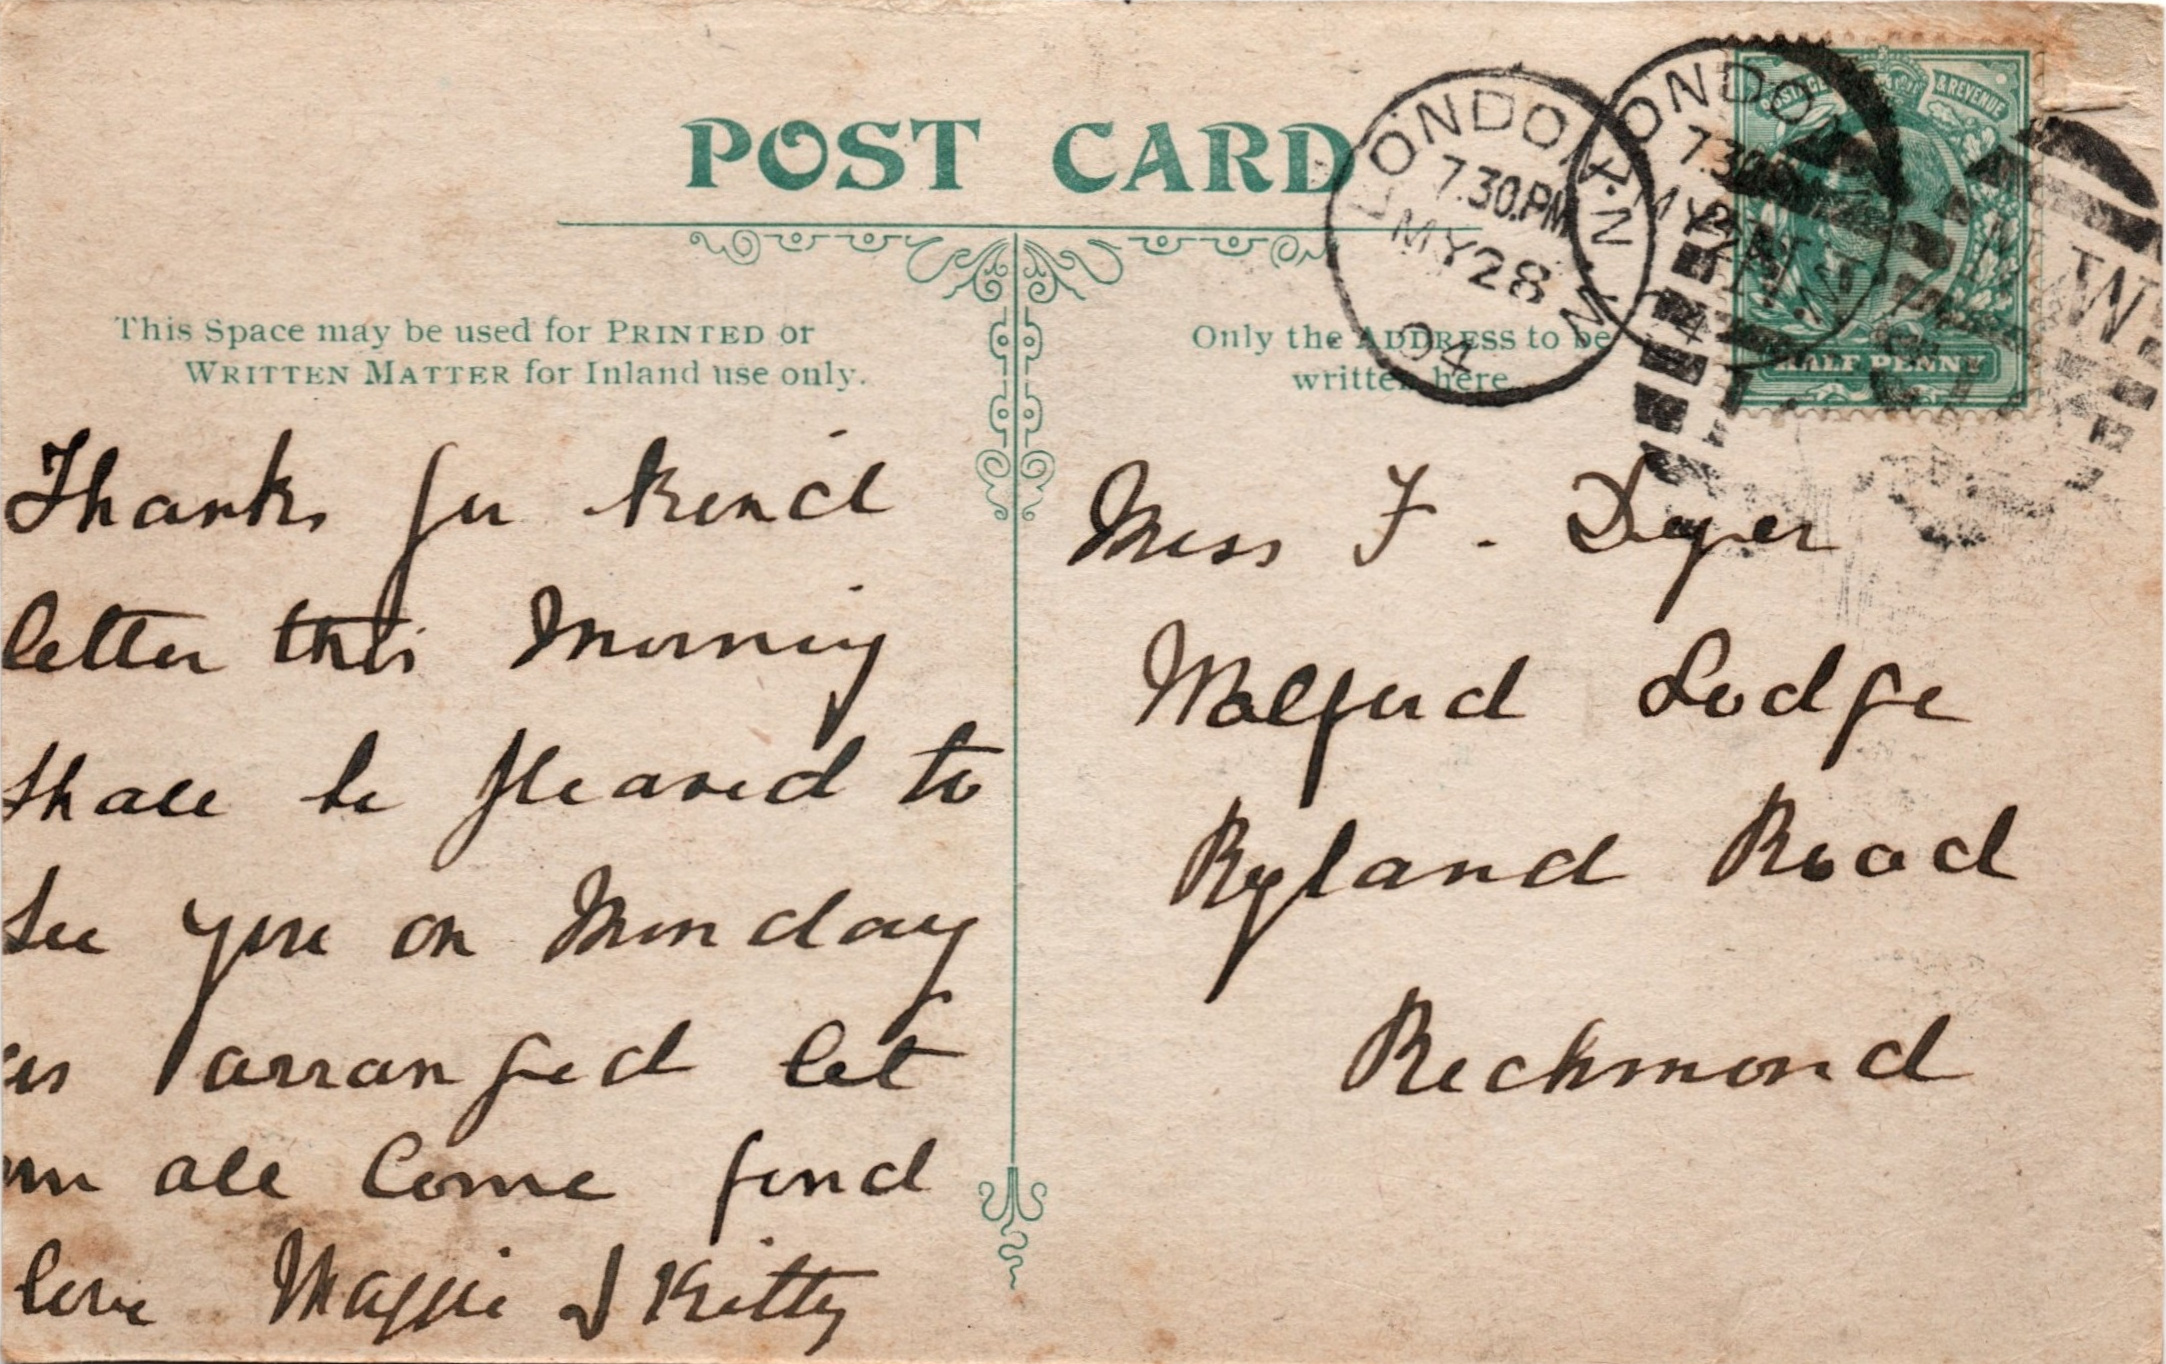 POST CARD
This Space may be used for PRINTED or
WRITTEN MATTER for Inland use only.
Only the ADDRESS to be
written here.
LONDON. N.W
7.30.PM
MY 28
04
LONDON
7.30PM
MY 2
N.W
POSTAGE & REVENUE
HALF PENNY
Thanks for kind
letter this Morning
shall be pleased to
see you on Monday
as arranged let
em all Come fond
love Maggie & Kitty
Miss F. Dyer
Walford Lodge
Ryland Road
Richmond